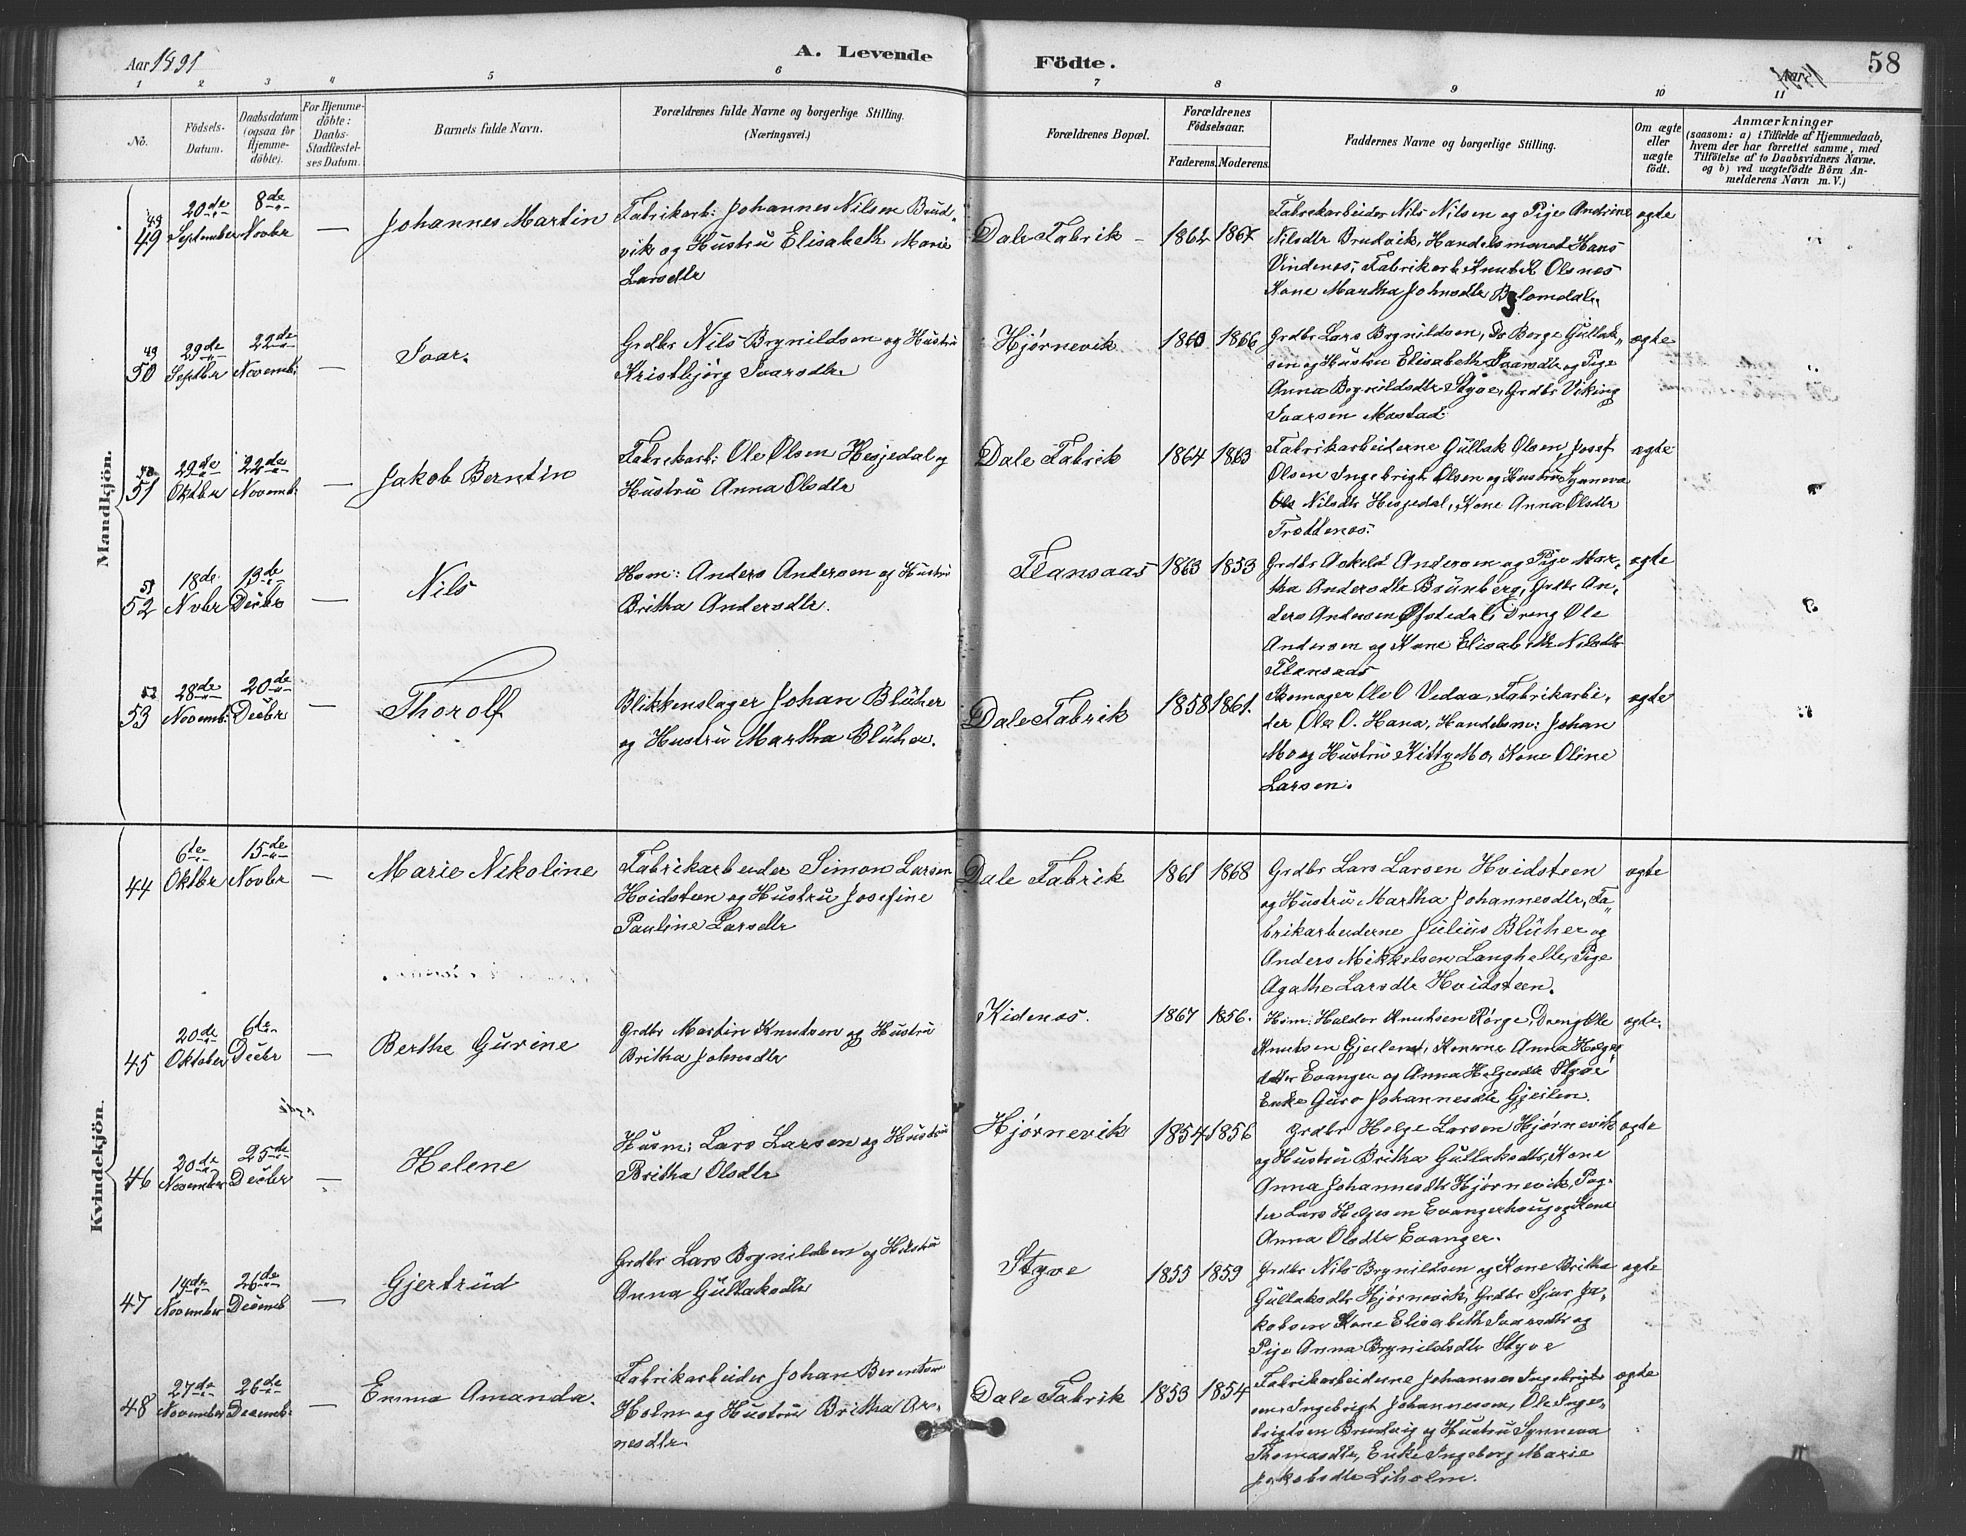 Aar 1891
A. Levende Födte.
58
1 2 3 4 5 6 7 8 9 10 11
No.
Födsels-Datum.
Daabsdatum (ogsaa for Hjemme-döbte).
For Hjemme-döbte: Daabs-Stadfæstel-ses Datum.
Barnets fulde Navn.
Forældrenes fulde Navne og borgerlige Stilling. (Næringsvei.)
Forældrenes Bopæl.
Forældrenes Födselsaar.
Faderens. Moderens.
Faddernes Navne og borgerlige Stilling.
Om ægte eller uægte födt.
Anmærkninger
(saasom: a) i Tilfælde af Hjemmedaab,
hvem der har forrettet samme, med
Tilföielse af to Daabsvidners Navne.
og b) ved uægtefödte Börn An-
melderens Navn m. V.)
Mandkjön.
49
20de September
8de Novbr
—
Johannes Martin
Fabrikarb: Johannes Nilsen Brud-
vik og Hustru Elisabeth Marie
Larsdtr
Dale Fabrik
1862 1867
Fabrikarbeider Nils Nilsen og Pige Andrine
Nilsdtr Brudvik, Handelsmand Hans
Vindenes, Fabrikarb Knut K Olsnes
Kone Martha Johnsdtr Blomdal
ægte
50
29de Septbr
22de Novemb:
—
Ivar.
Grdbr Nils Brynildsen og Hustru
Kristbjørg Ivarsdtr
Hjørnevik
1863 1866
Grdbr Lars Brynildsen, Do Børge Gullak-
sen og Hustru Elisabeth Ivarsdtr og Pige
Anna Brynildsdtr Styve, Grdbr Viking
Ivarsen Mostad
ægte
51
29de Oktbr
22de Novemb
—
Jakob Berntin
Fabrikarb: Ole Olsen Hesjedal og
Hustru Anna Olsdtr
Dale Fabrik
1864 1863
Fabrikarbeiderne Gullak Olsen, Josef
Olsen Ingebrigt Olsen og Hustru Synneva
Nilsdtr Hesjedal, Kone Anna Olsdtr
Trættenes.
ægte
52
18de Novbr
13de Decbr
—
Nils
Hsm: Anders Andersen og Hustru
Britha Andersdtr.
Flansaas
1863 1853
Grdbr Askeld Andersen og Pige Mar-
tha Andersdtr Brunberg, Grdbr An-
ders Andersen Øfstedal, Dreng Ole
Andersen og Kone Elisabeth Nilsdtr
Flansaas
ægte
53
28de Novemb:
20de Decbr
—
Thorolf
Blikkenslager Johan Blüher
og Hustru Martha Blüher.
Dale Fabrik
1858 1861.
Skomager Ole O Vedaa, Fabrikarbei-
der Ole O. Hana, Handelsm: Johan
Mo og Hustru Kitty Mo, Kone Oline
Larsen.
ægte
Kvindekjön.
44
6te Oktbr
15de Novbr
—
Marie Nikoline
Fabrikarbeider Simon Larsen
Hvidsteen og Hustru Josefine
Pauline Larsdtr
Dale Fabrik
1861 1868
Grdbr Lars Larsen Hvidsteen
og Hustru Martha Johannesdtr, Fa-
brikarbeiderne Julius Blüher og
Anders Mikkelsen Langhelle, Pige
Agathe Larsdtr Hvidsteen.
ægte
45
20de Oktober
6te Decbr
—
Berthe Gurine
Grdbr Martin Knutsen og Hustru
Britha Johnsdtr
Kidenes.
1867 1856.
Hsm: Haldor Knutsen Rørge, Dreng Ole
Knutsen Gjeilen, Konerne Anna Helges-
datter Evanger og Anna Helgesdtr Styve
Enke Guro Johannesdtr Gjeilen.
ægte.
46
20de November
25de Decbr
—
Helene
Husm: Lars Larsen og Hustru
Britha Olsdtr
Hjørnevik
1854 1856
Grdbr Helge Larsen Hjørnevik
og Hustru Britha Gullaksdtr, Kone
Anna Johannesdtr Hjørnevik, Pag-
ter Lars Helgesen Evangerhoug og Kone
Anna Olsdtr Evanger.
ægte
47
14de November
26de Decemb
—
Gjertrüd
Grdbr Lars Brynildsen og Hustru
Anna Gullaksdtr
Styve
1855 1859
Grdbr Nils Brynildsen og Kone Britha
Gullaksdtr Hjørnevik, Grdbr Sjur Ja-
kobsen Kone Elisabeth Ivarsdtr og
Pige Anna Brynildsdtr Styve
ægte
48
27de November
26de Decemb:
—
Emma Amanda.
Fabrikarbeider Johan Berntsen
Holm og Hustru Britha Ar-
nesdtr.
Dale Fabrik
1853 1854
Fabrikarbeiderne Johannes Ingebrigt-
sen, Ingebrigt Johannessen, Ole Inge-
brigtsen Brudvig og Hustru Synneva
Thomasdtr, Enke Ingeborg Marie
Jakobsdtr Liholm.
ægte